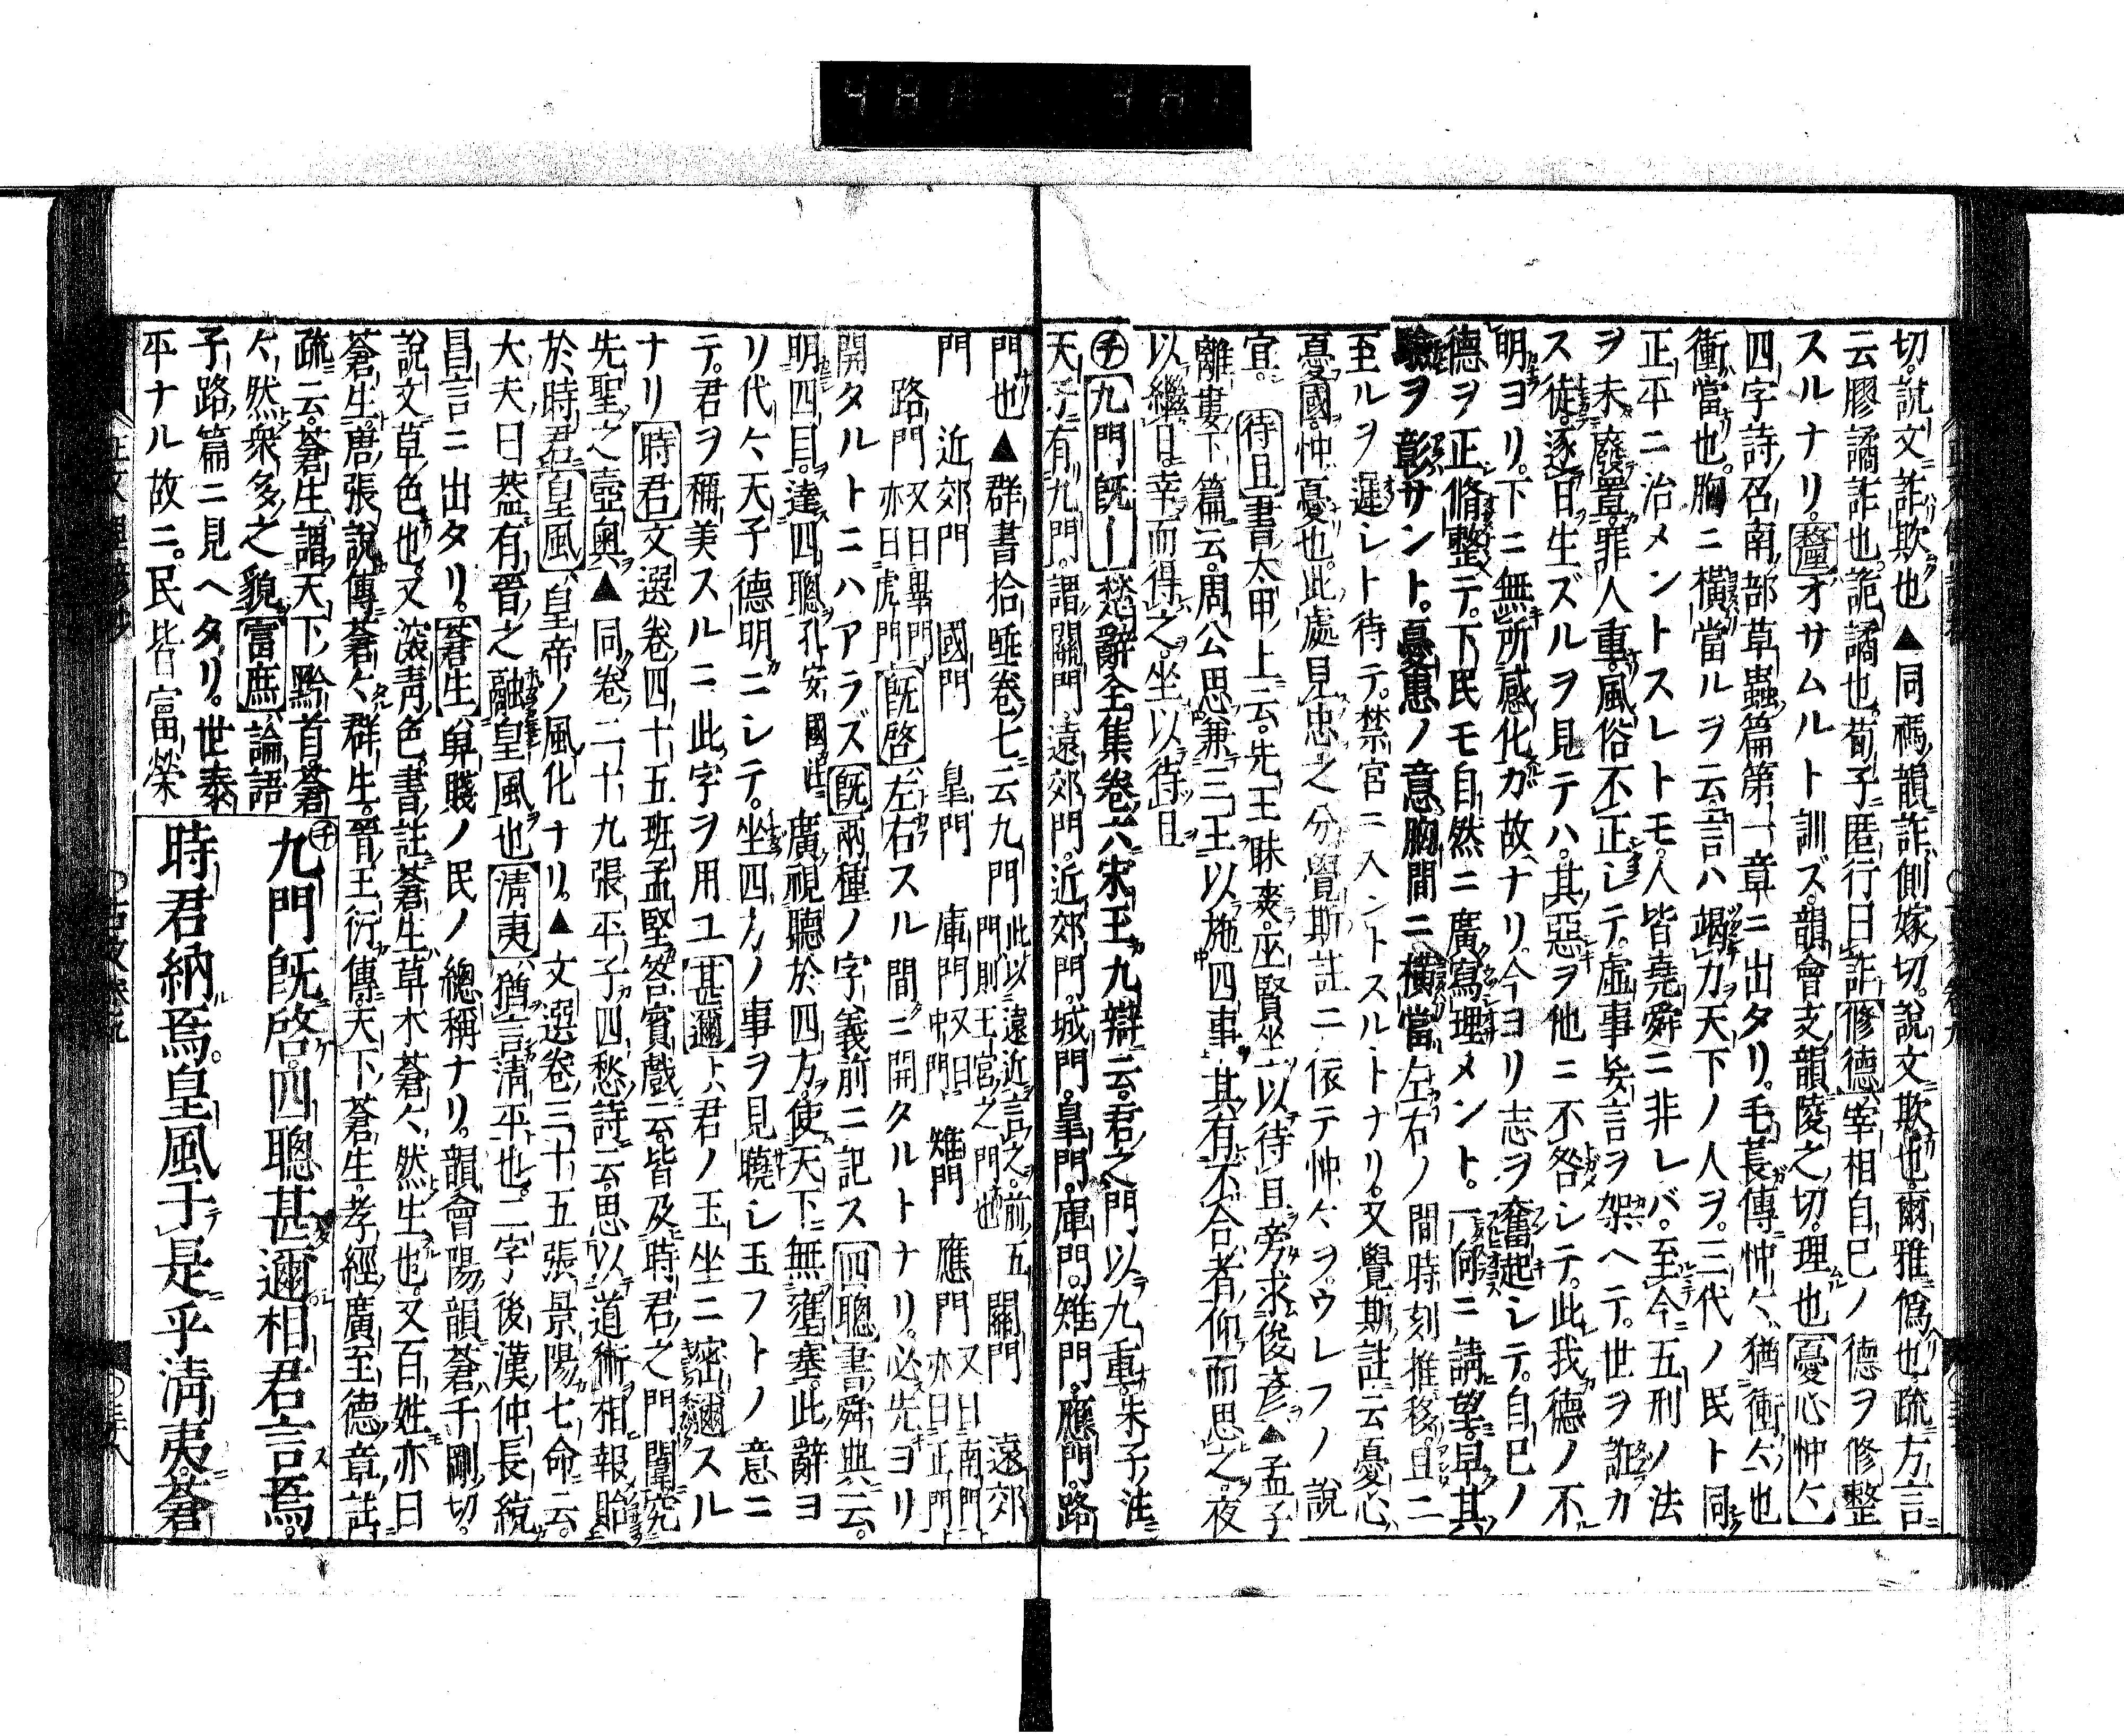 切。說文ニ詐欺也▲同禡韻詐側嫁切。說文ニ欺也。爾雅僞也。疏方言ニ
云膠譎詐也。詭譎也。荀子匿行曰詐修德宰相自巳ノ德ヲ修整
スルナリ。釐オサムルト訓ズ。韻會支韻陵之切。理也憂心忡〻
四字詩召南部草蟲篇第一章ニ出タリ。毛萇傳忡〻猶衝〻也
衝當也。胸ニ橫當ルヲ云言ハ竭力天下ノ人ヲ。三代ノ民ト同
正平ニ治メントスレトモ。人皆堯舜ニ非レバ。至今五刑ノ法
ヲ未廢置。罪人重。風俗不正シテ。虛事矣言ヲ架ヘテ。世ヲ誑カ
ス徒。逐日生ズルヲ見テハ。其惡ヲ他ニ不咎シテ。此我德ノ不
明ヨリ。下ニ無所感化ガ故ナリ。今ヨリ志ヲ奮起シテ。自巳ノ
德ヲ正脩整テ。下民モ自然ニ廣寫理メント。一向ニ請望。早其
驗ヲ彰サント。憂患ノ意胸間ニ橫當左右ノ間時刻推移且ニ
至ルヲ遲レト待テ。禁宮ニ入ントスルトナリ。又覺斯註云憂心
憂國。忡憂也。此處見忠之分覺斯註ニ依テ忡〻ヲ。ウレフノ說
宜。待旦書太甲上云。先王昧爽。巫賢坐以待旦旁求俊彥▲孟子
離婁下篇云。周公思兼三王以施四事其有不合者仰而思之。夜
以繼日。幸而得之。坐以待旦
㋠九門旣ー楚辭全集卷六宋玉九辯云。君之門以九重。朱子注
天子有九門。謂關門。遠郊門。近郊門。城門。皇門。庫門。雉門。應門。路
門也▲群書拾唾卷七云九門此以遠近言之。前五門則王宮之門也關門　遠郊
門　近郊門　國門　皇門　庫門又曰中門　雉門　應門又曰南門亦曰正門
路門又曰畢門亦曰虎門旣啓左右スル間ニ開タルトナリ。必先ヨリ
開タルトニハアラズ旣兩種ノ字義前ニ記ス四聰書舜典云。
明四目。達四聰孔安國註廣視聽於四方。使天下無壅塞。此辭ヨ
リ代〻天子德明ニシテ。坐四方ノ事ヲ見曉シ玉フトノ意ニ
テ。君ヲ稱美スルニ此字ヲ用ユ甚邇ハ君ノ玉坐ニ密邇スル
ナリ時君文選卷四十五班孟堅答賓戲云。皆及時君之門闈究
先聖之壼奧▲同卷二十九張平子四愁詩云。思以道術相報貽
於時君皇風皇帝ノ風化ナリ。▲文選卷三十五張景陽七命云。
大夫曰葢有晉之融皇風也淸夷猶言淸平也。二字後漢仲長統
昌言ニ出タリ。蒼生卑賤ノ民ノ總稱ナリ。韻會陽韻蒼千剛切。
說文草色也。又深靑色。書註蒼生草木蒼〻然生也。又百姓亦曰
蒼生。唐張說傳蒼〻群生。晉王衍傳。天下蒼生。孝經廣至德章註
疏云。蒼生謂天下黔首。蒼
〻然衆多之貌富庶論語
子路篇ニ見ヘタリ。世泰
平ナル故ニ。民皆富榮
㋠九門旣啓。四聰甚邇相君言焉。
時君納焉。皇風于是乎淸夷。蒼